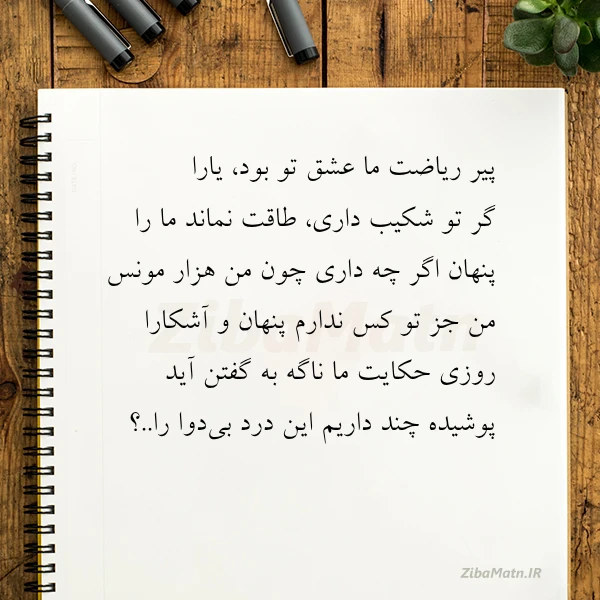 پیر ریاضت ما عشق تو بود، یارا
گر تو شکیب داری، طاقت نماند ما را
پنهان اگر چه داری چون من هزار مونس
من جز تو کس ندارم پنهان و آشکارا
روزی حکایت ما ناگه به گفتن آید
پوشیده چند داریم این درد بی‌دوا را..؟
ZibaMatn
ZibaMatn.IR